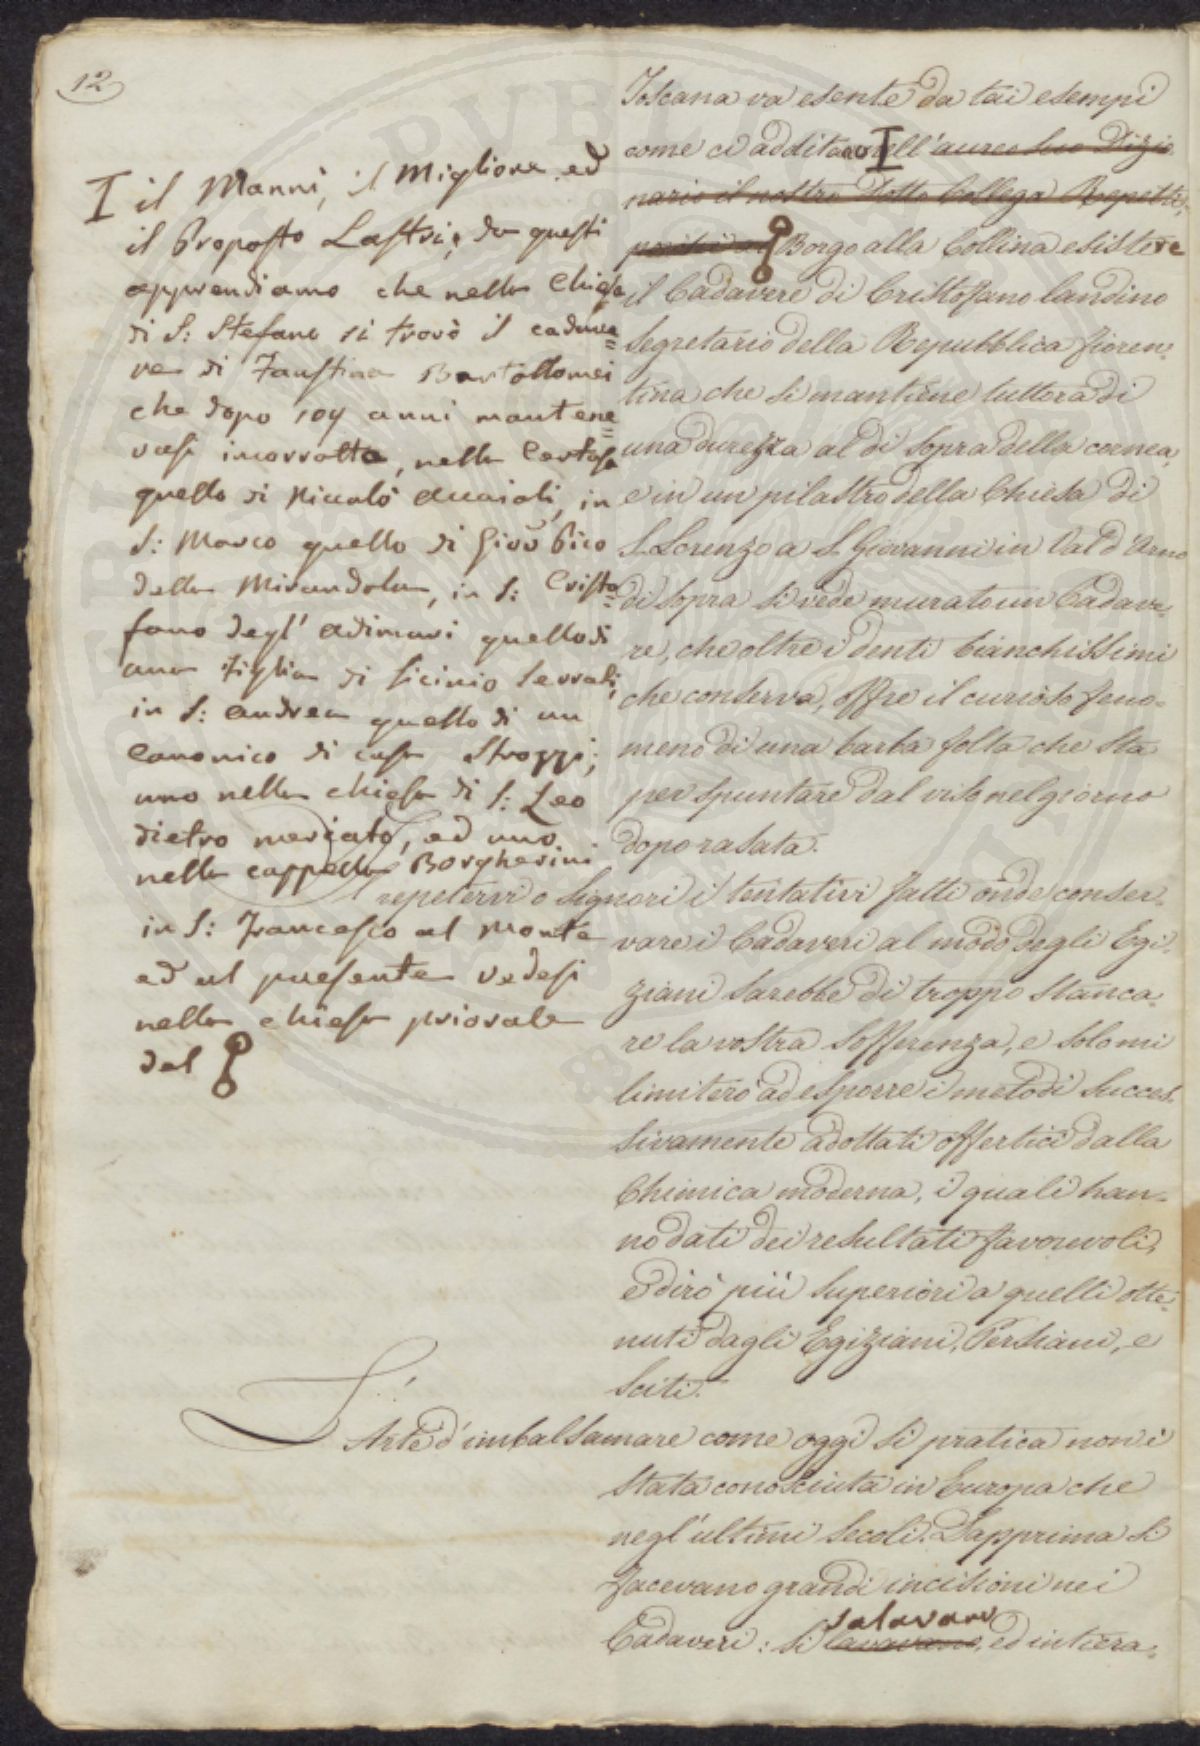 12
Toscana va esente da tai esempi
come ci additano I nell'aureo suo Dizio
nario il nostro Dotto Collega Repetti,
Borgo alla Collina esistere
il Cadavere di Cristofano landino
Segretario della Repubblica fioren-
tina che si mantiene tuttora di
una durezza al di sopra della cornea,
e in un pilastro della Chiesa di
S. Lorenzo a S. Giovanni in Val d'Arno
di sopra si vede murato un Cadave-
re, che oltre i denti bianchissimi
che conserva, offre il curioso feno-
meno di una barba folta che sta
per spuntare dal viso nel giorno
dopo rasata.
repetervi o Signori i tentativi fatti onde conser-
vare i Cadaveri al modo degli Egi-
ziani sarebbe di troppo stanca-
re la vostra sofferenza, e solo mi
limiterò ad esporre i metodi succes-
sivamente adottati offertici dalla
Chimica moderna, i quali han-
no dati dei resultati favorevoli,
e dirò più superiori a quelli otte-
nuti dagli Egiziani, Persiani, e
Sciti.
L'Arte d'imbalsamare come oggi si pratica non è
stata conosciuta in Europa che
negl'ultimi Secoli. Dapprima si
facevano grandi incisioni nei
Cadaveri: si lavavano, ed intiera-
salavano
I il Manni, il Migliore ed
il Proposto Lastri; da questi
apprendiamo che nella Chiesa
di S: Stefano si trovò il cadave=
re di Faustina Bartolomei
che dopo 109 anni mantene=
vasi incorrotta, nella Certosa
quello di Niccolò Acciaioli, in
S: Marco quello di Giov: Pico
della Mirandola, in S: Cristo=
fano degl'Adimari quello di
una figlia di Licinio Serrali,
in S: Andrea quello di un
Canonico di casa Strozzi;
uno nella chiesa di S: Leo
dietro mercato, ed uno
nella cappella Borgherini
in S: Francesco al Monte
ed al presente vedesi
nella chiesa priorale
del